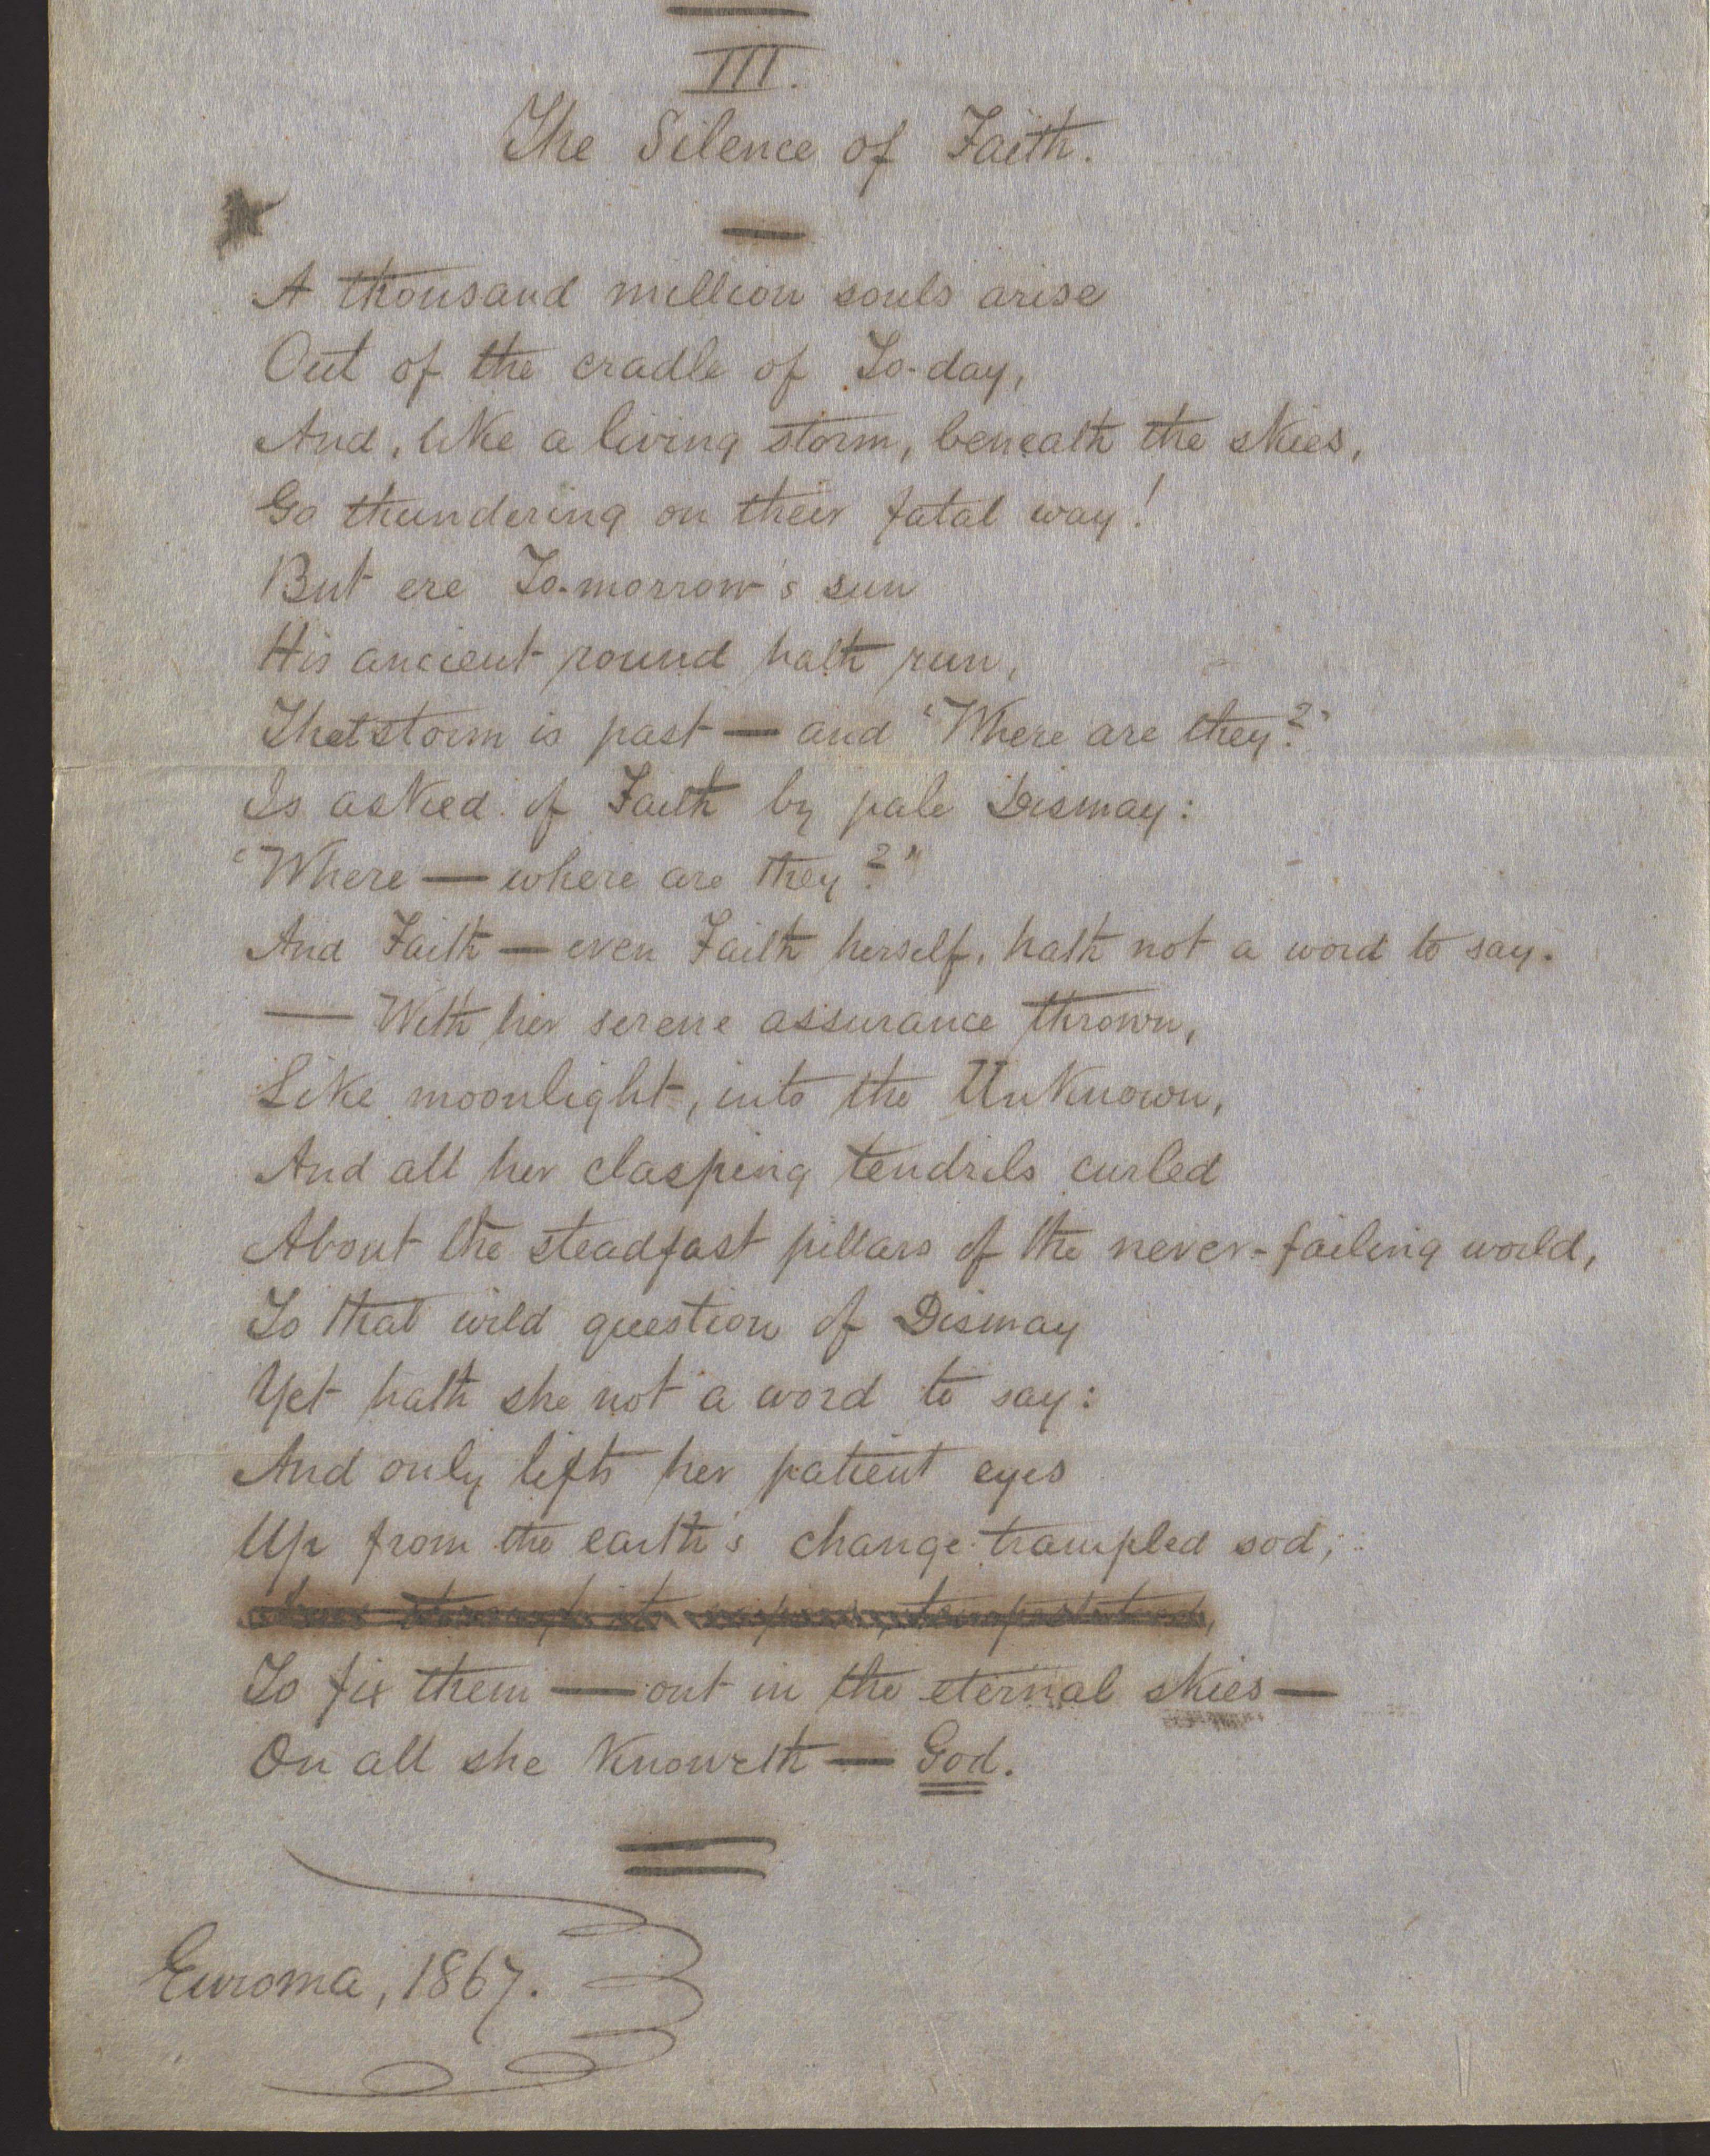 III.
The Silence of Faith.
A thousand million souls arise
Out of the cradle of To-day,
And, like a living storm, beneath the skies,
Go thundering on their fatal way!
But ere To-morrow's sun
His ancient round hath run,
That storm is past — and "Where are they?"
Is asked of Faith by pale Dismay:
"Where — where are they?"
And Faith — even Faith herself, hath not a word to say.
— With her serene assurance thrown,
Like moonlight, into the Unknown,
And all her clasping tendrils curled
About the steadfast pillars of the never-failing world,
To that wild question of Dismay
Yet hath she not a word to say:
And only lifts her patient eyes
Up from the earth's change-trampled sod;
To fix them — out in the eternal skies —
On all she knoweth — God.
Euroma, 1867.